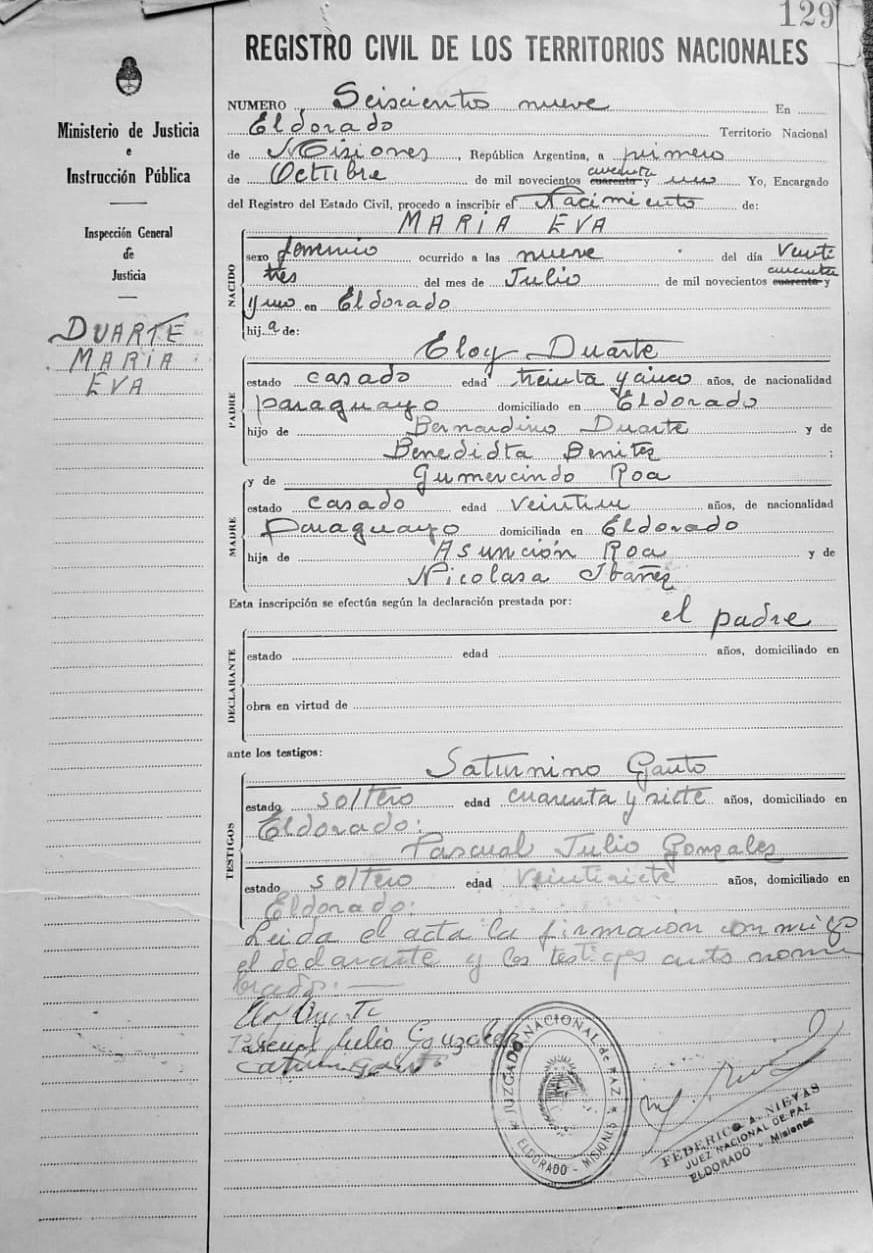 129
REGISTRO CIVIL DE LOS TERRITORIOS NACIONALES
Ministerio de Justicia
e
Instrucción Pública
Inspección General
de
Justicia
DUARTE
MARIA
EVA
NUMERO Seiscientos nueve En
Eldorado Territorio Nacional
de Misiones, República Argentina, a primero
cincuenta
de Octubre de mil novecientos cuarenta y uno Yo, Encargado
del Registro del Estado Civil, procedo a inscribir el Nacimiento de:
MARIA EVA
NACIDO
sexo femenino ocurrido a las nueve del día Veinti
cincuenta
tres del mes de Julio de mil novecientos cuarenta y
y uno en Eldorado
hija de:
Eloy Duarte
PADRE
estado casado edad treinta y cinco años, de nacionalidad
paraguayo domiciliado en Eldorado
hijo de Bernardino Duarte y de
Benedidta Benitez ;
y de Gumercindo Roa
MADRE
estado casado edad años, de nacionalidad
paraguayo domiciliada en Eldorado
hija de Asunción Roa y de
Nicolasa Ibañez
Esta inscripción se efectúa según la declaración prestada por:
el padre
DECLARANTE
estado edad años, domiciliado en
obra en virtud de
ante los testigos:
Saturnino Gauto
TESTIGOS
estado soltero edad cuarenta y siete años, domiciliado en
Eldorado:
Pascual Julio Gonzales
estado soltero edad Veintisiete años, domiciliado en
Eldorado:
Leida el acta la firmaron conmigo
el declarante y los testigos ante nom
brados:
Pascual Julio Gonzales
JUZGADO NACIONAL de PAZ
ELDORADO - MISIONES
FEDERICO A. NIEVAS
JUEZ NACIONAL DE PAZ
ELDORADO - Misiones